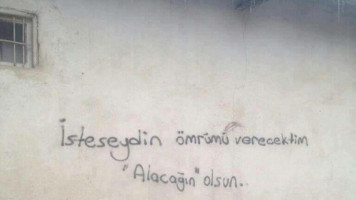 İsteseydin ömrümü verecektim
"Alacağın" olsun..